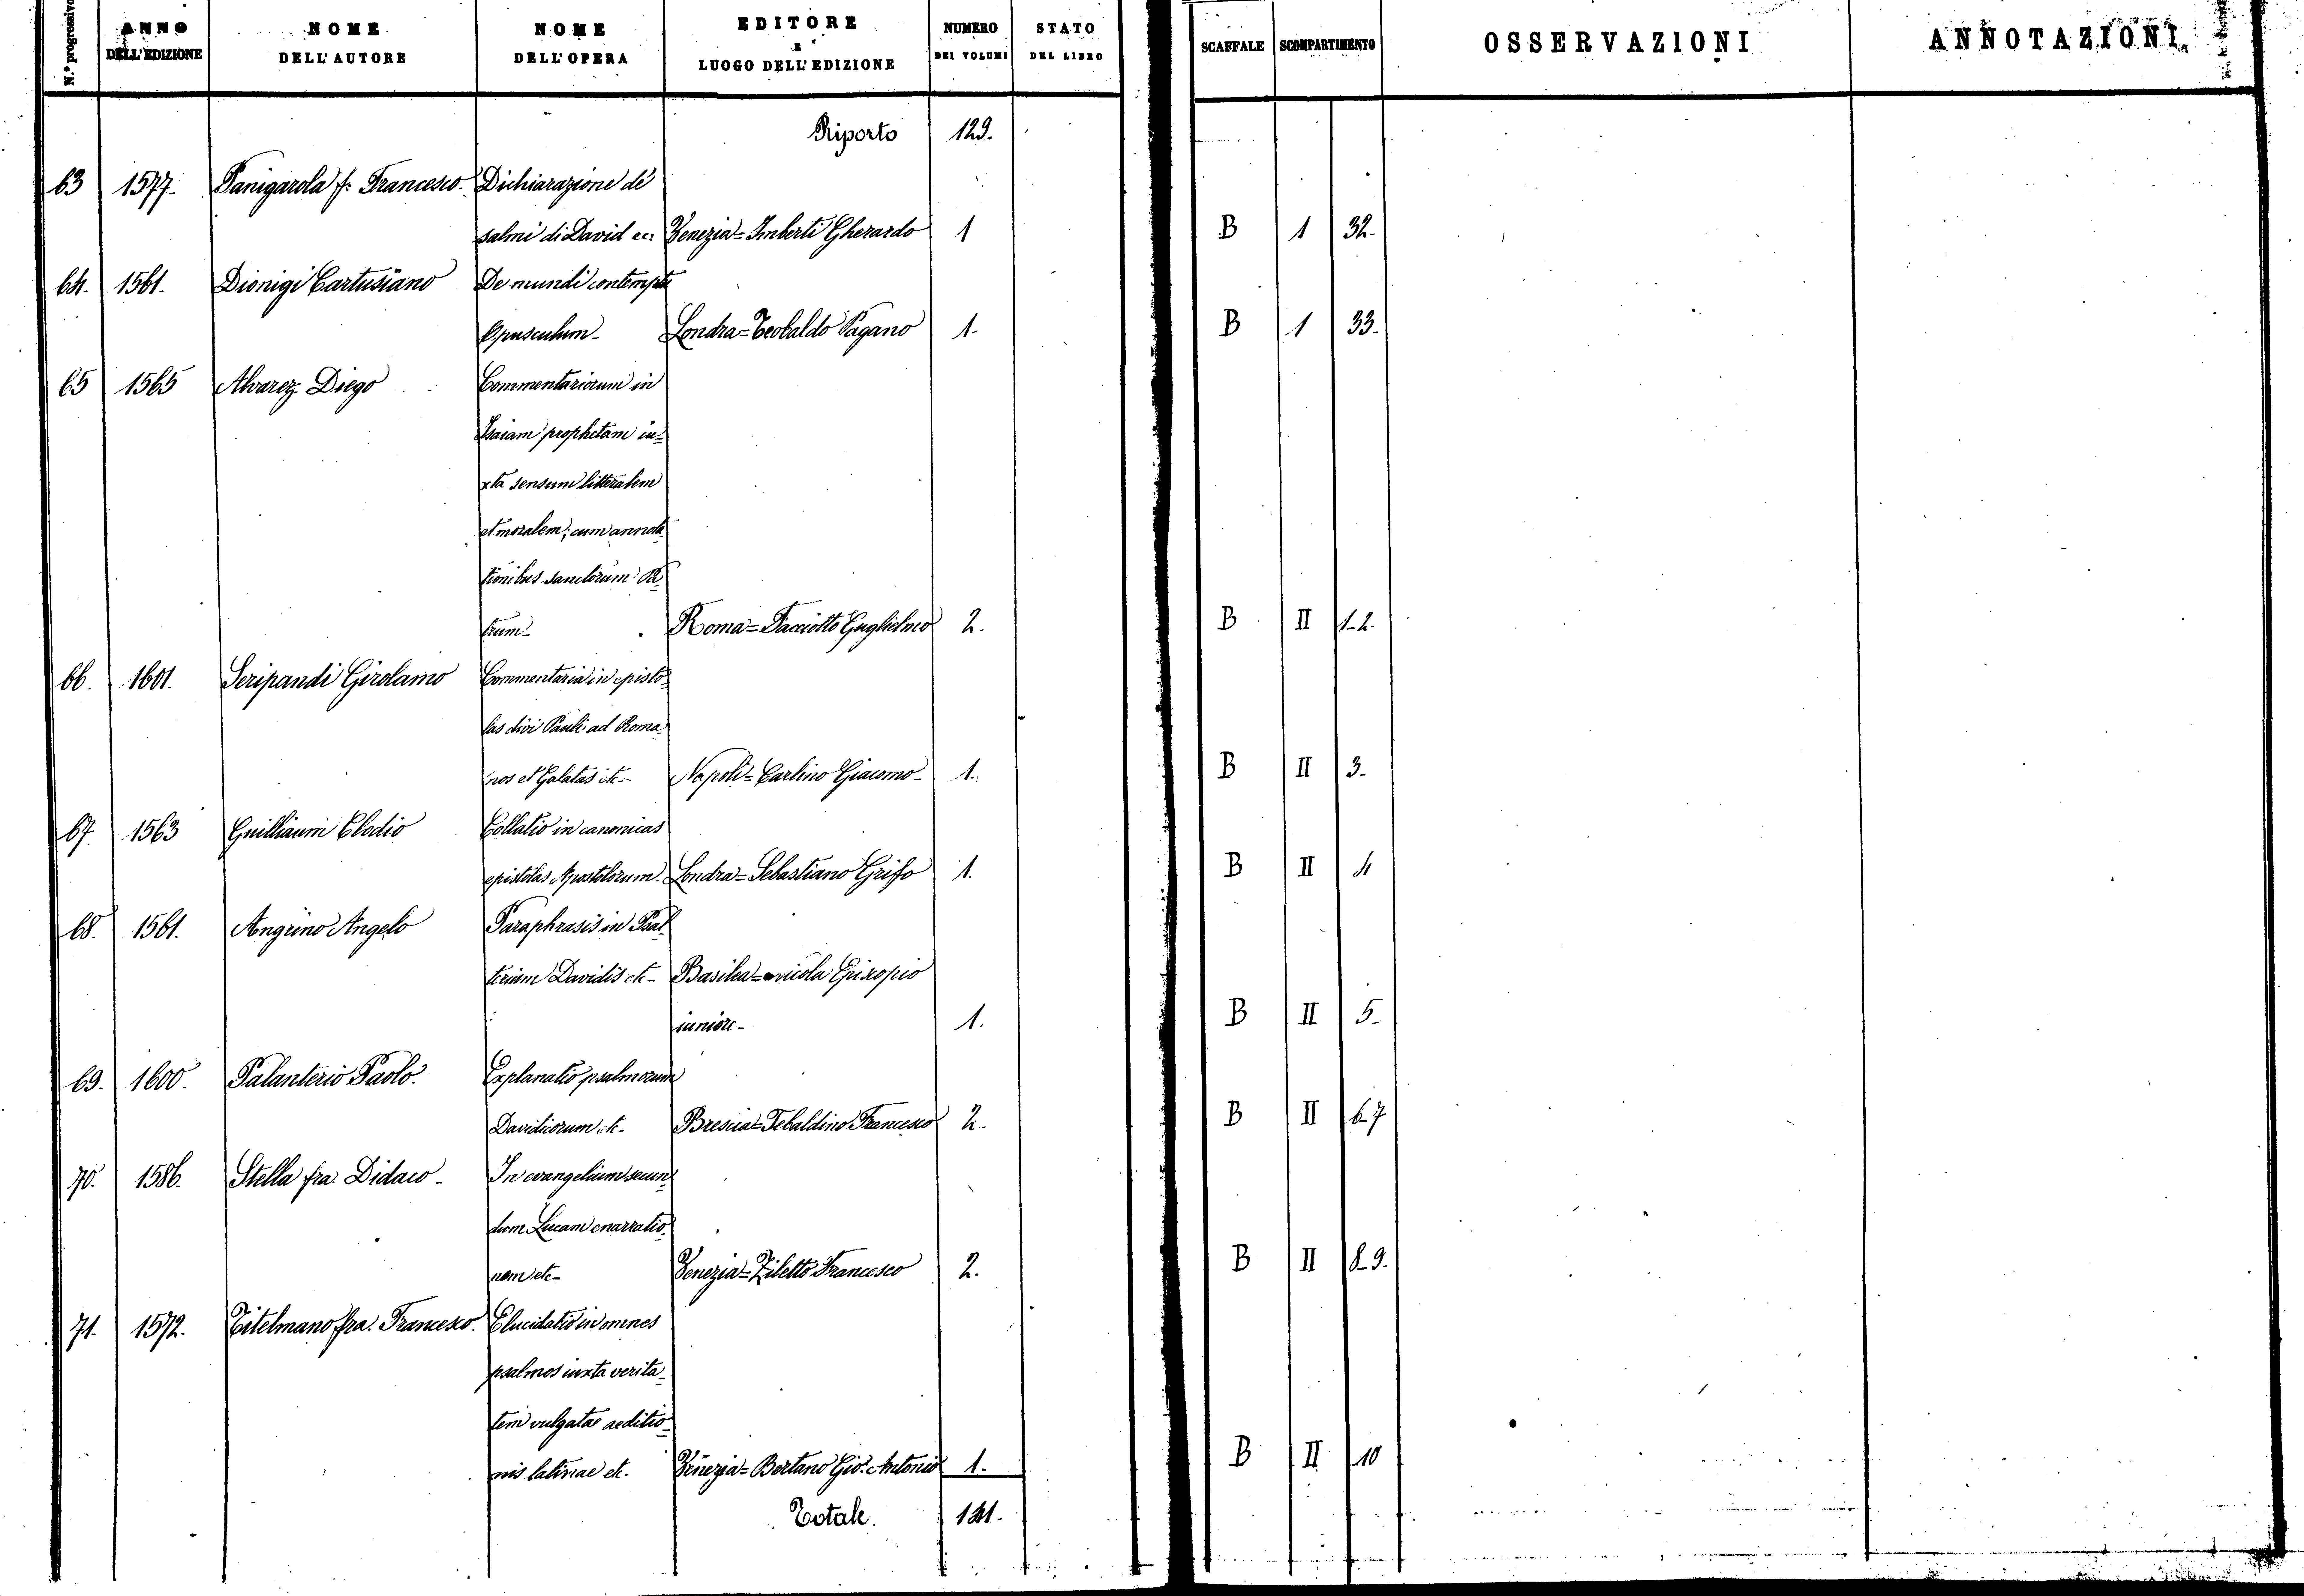 N.º progressivo ANNO DELL'EDIZIONE NOME DELL'AUTORE NOME DELL'OPERA EDITORE E LUOGO DELL'EDIZIONE NUMERO DEI VOLUMI STATO DEL LIBRO SCAFFALE SCOMPARTIMENTO OSSERVAZIONI ANNOTAZIONI
Riporto 129.
63 1577- Panigarola f. Francesco- Dichiarazione dè
salmi di David ec: Venezia=Imberti Gherardo 1 B 1 32.
64. 1561. Dionigi Cartusiano De mundi contemptu
Opusculum- Londra=Teobaldo Pagano 1. B 1 33.
65 1565 Alvarez Diego Commentariorum in
Isaiam prophetam iu=
xta sensum litteralem
et moralem; cum annota
tionibus sanctorum Pa
trum- Roma=Facciotto Guglielmo 2. B II 1-2.
66. 1601. Seripandi Girolamo Commentaria in episto=
las divi Pauli ad Roma=
nos et Galatas etc- Napoli=Carlino Giacomo- 1. B II 3.
67. 1563 Guilliaum Clodio Collatio in canonicas
epistolas Apostolorum. Londra=Sebastiano Grifo 1. B II 4
68. 1561. Angrino Angelo Paraphrasis in Psal
terium Davidis etc- Basilea=Nicola Episcopio
iuniore- 1. B II 5.
69. 1600. Palanterio Paolo. Explanatio psalmorum
Davidicorum etc- Brescia=Tebaldino Francesco 2. B II 6-7
70. 1586. Stella fra Didaco- In evangelium secun=
dum Lucam enarratio=
nem etc- Venezia=Ziletto Francesco 2. B II 8-9.
71. 1572. Titelmano fra. Francesco. Elucidatio in omnes
psalmos iuxta verita=
tem vulgatae aeditio=
nis latinae etc. Venezia=Bertano Gio. Antonio 1. B II 10
Totale. 141.